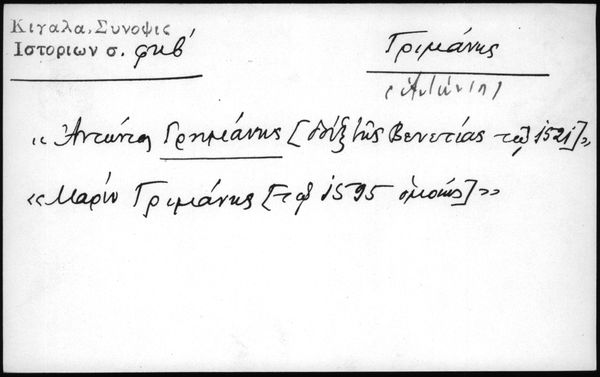 Κιγαλα, Συνοψις
Ιστοριων σ. φκβ'
Γριμάνης
(Ἀντώνιος)
«Ἀντώνιος Γρημιάνης [δὸξ τῆς Βενετίας τῷ 1521]»
«Μαρίν Γριμιάνης [τῷ 1595 ὁμοίως]»